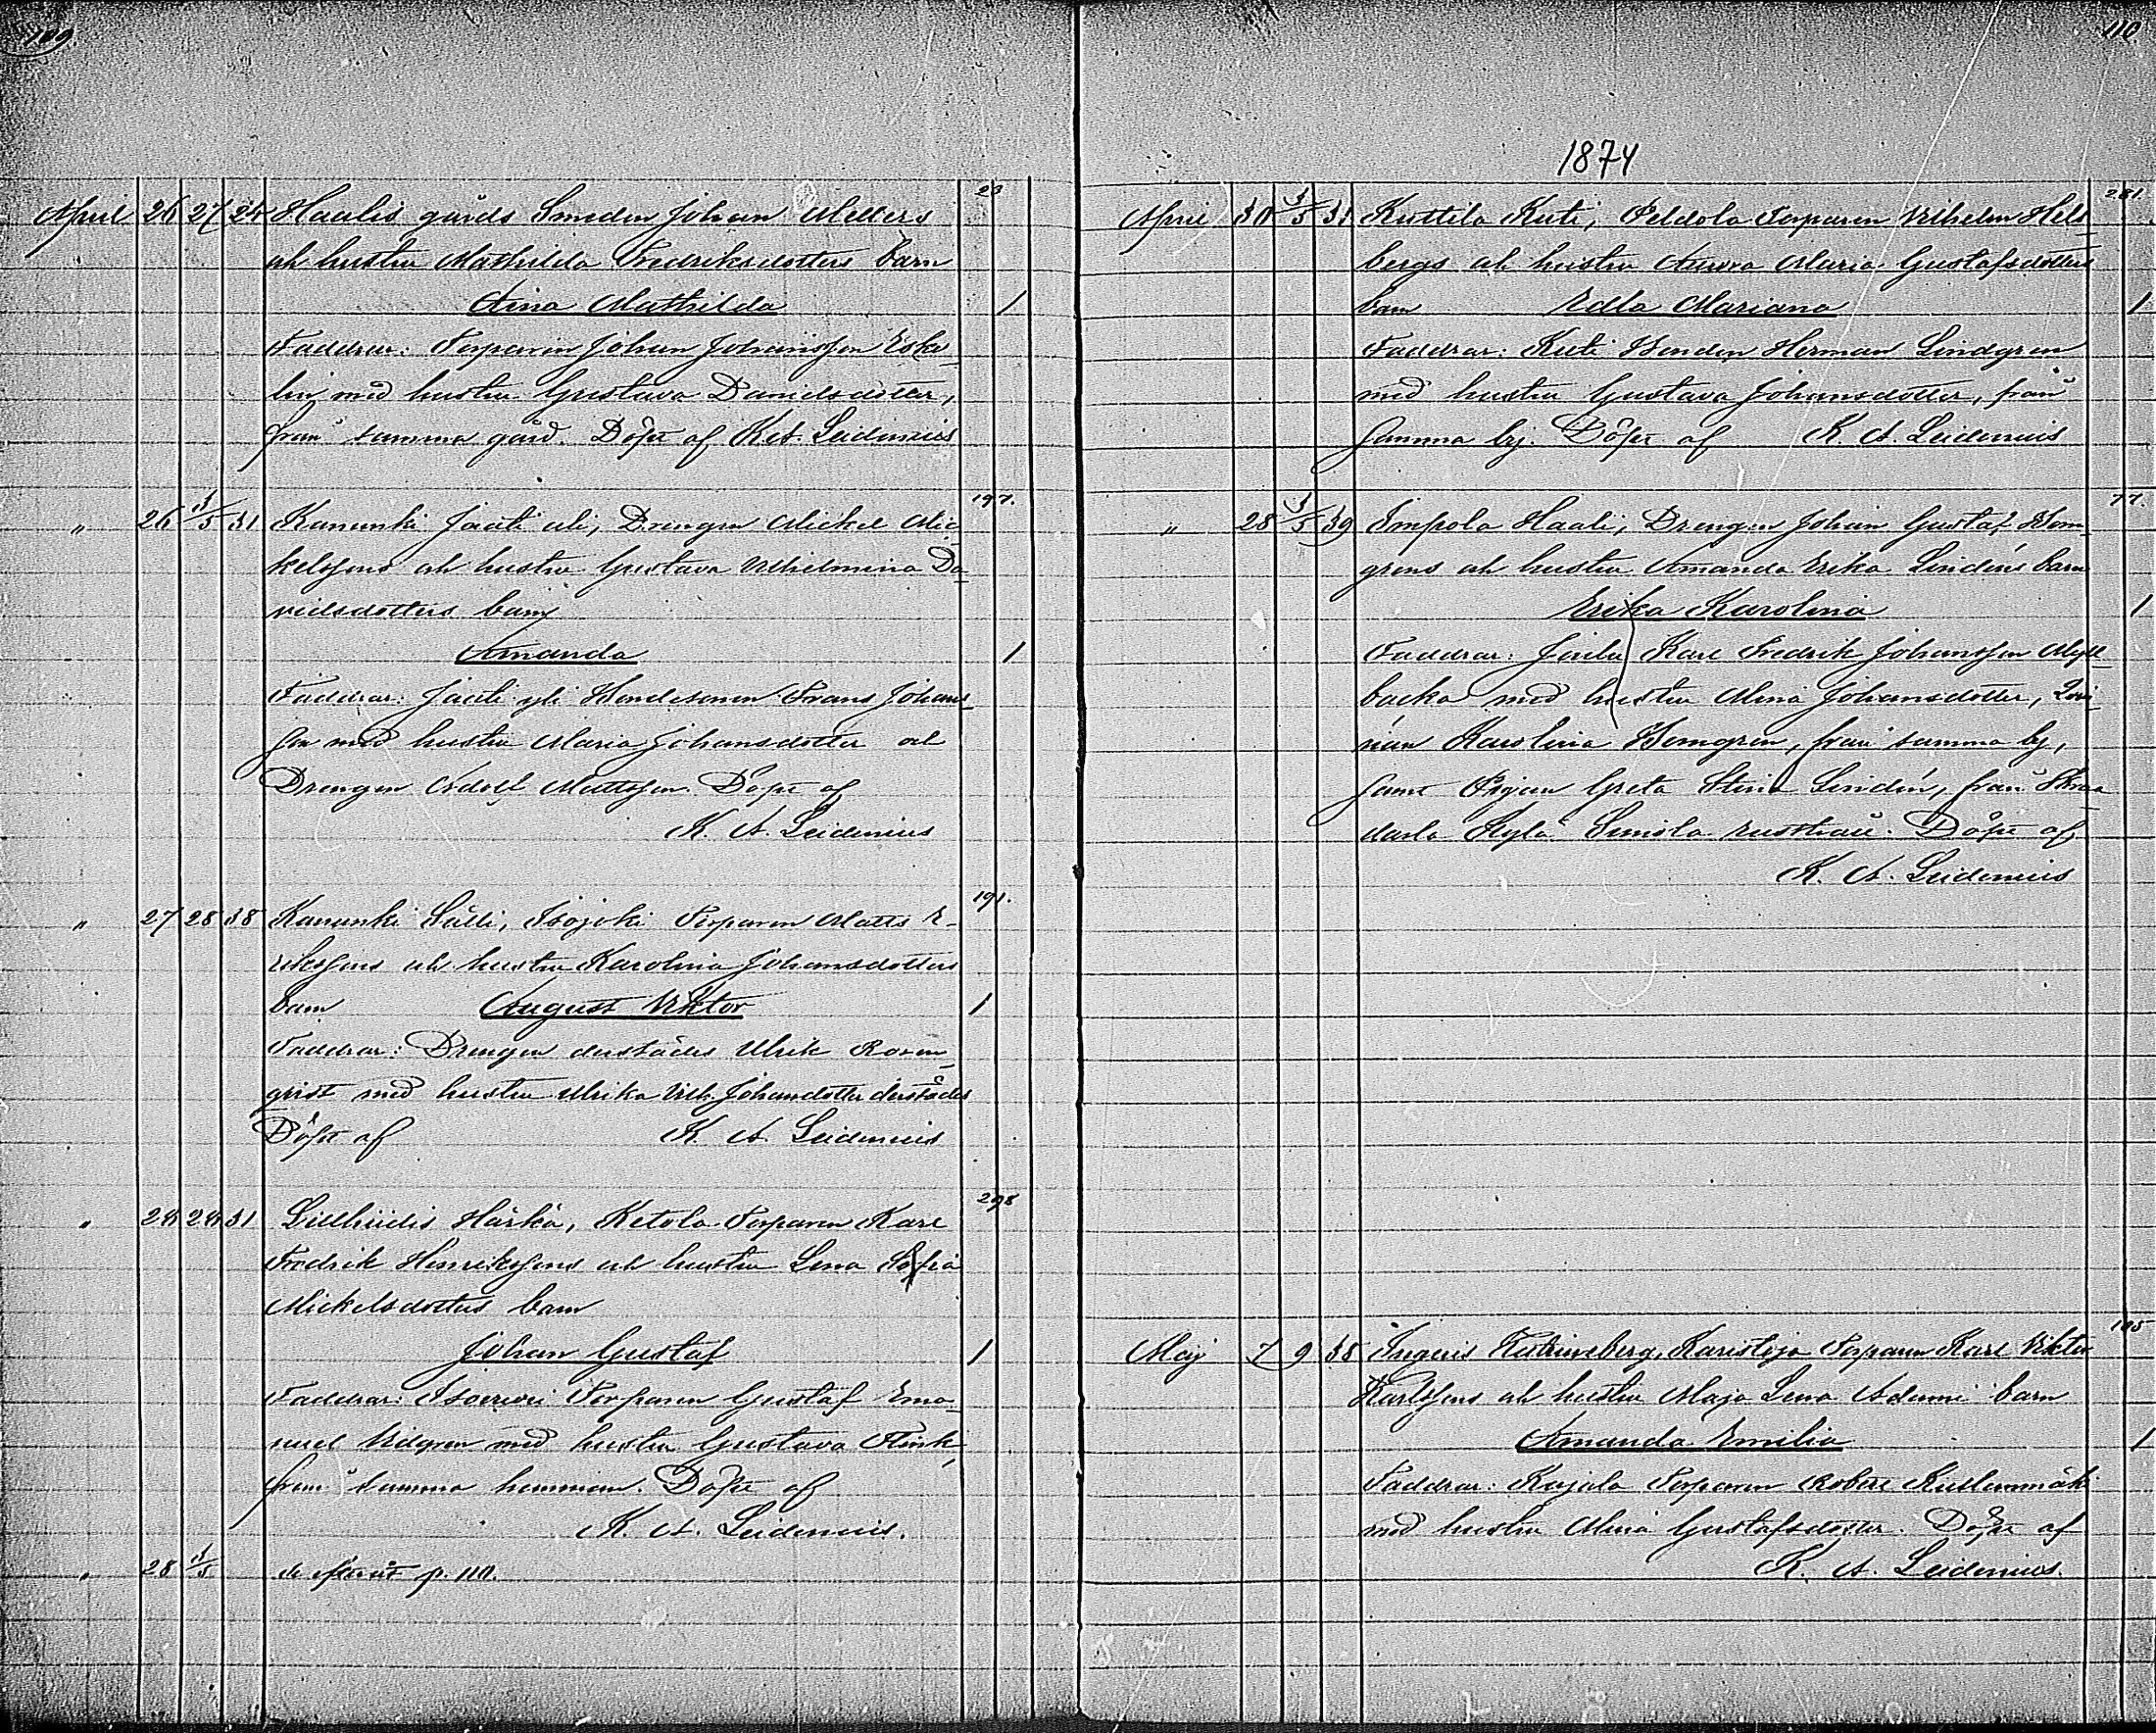 109.
23
April 26 27 24 Haalis gårds Smeden Johan Mellers
och hustru Mathilda Fredriksdotters barn
Aina Mathilda 1
Faddrar: Torparen Johan Johansson Eske-
lin med hustru Gustava Danielsdotter,
från samma gård. Döpt af K. A. Leidenius
197.
" 26 1/5 31 Kanunki Jaati ali, Drengen Mickel Mic-
kelssons och hustru Gustava Vilhelmina Da-
vidsdotters barn
Amanda 1
Faddrar: Jaati yli Hemdesonen Frans Johans-
son med hustru Maria Johansdotter och
Drengen Adolf Mattsson. Döpt af
K. A. Leidenius
191.
" 27 28 38 Kanunki Sälli, Isojoki Torparen Matts E-
rikssons och hustru Karolina Johansdotters
barn August Viktor 1
Faddrar: Drengen derstädes Ulrik Rosen-
qvist med hustru Ulrika Vilh. Johansdotter derstädes
Döpt af K. A. Leidenius
298
" 24 24 31 Härkä, Ketola Torparen Karl
Fredrik Henrikssons och hustru Lena Sofia
Mickelsdotters barn
Johan Gustaf 1
Faddrar: Torparen Gustaf Ema-
nuel Vidgren med hustru Gustava Flink
från samma hemman. Döpt af
K. A. Leidenius.
" 28 1/5 p. 110.
110
1874
281.
April 30 3/5 31 Kuttila Kuti, Peldola Torparen Vilhelm Hell-
bergs och hustru Aurora Maria Gustafsdotters
barn Edla Mariana 1
Faddrar: Kuti Bonden Herman Lindgren
med hustru Gustava Johansdotter, från
samma by. Döpt af K. A. Leidenius
77.
" 28 3/5 39 Impola Haali, Drengen Johan Gustaf Blom-
grens och hustru Amanda Erika Lindéns barn
Erika Karolina 1
Faddrar: Karl Fredrik Johansson Myll-
backa med hustru Alma Johansdotter,
Karolina Blomgren, från samma by,
samt Pigan Greta Stina Lindén, från
Kylä Simola. Döpt af
K. A. Leidenius
105
Maj 7 9 38 Inguris Katrineberg, Karistoja Torparen Karl Viktor
Karlssons och hustru Maja Lena Adami barn
Amanda Emilia 1
Faddrar: Kujala Torparen Robert
med hustru Gustafsdotter. Döpt af
K. A. Leidenius.